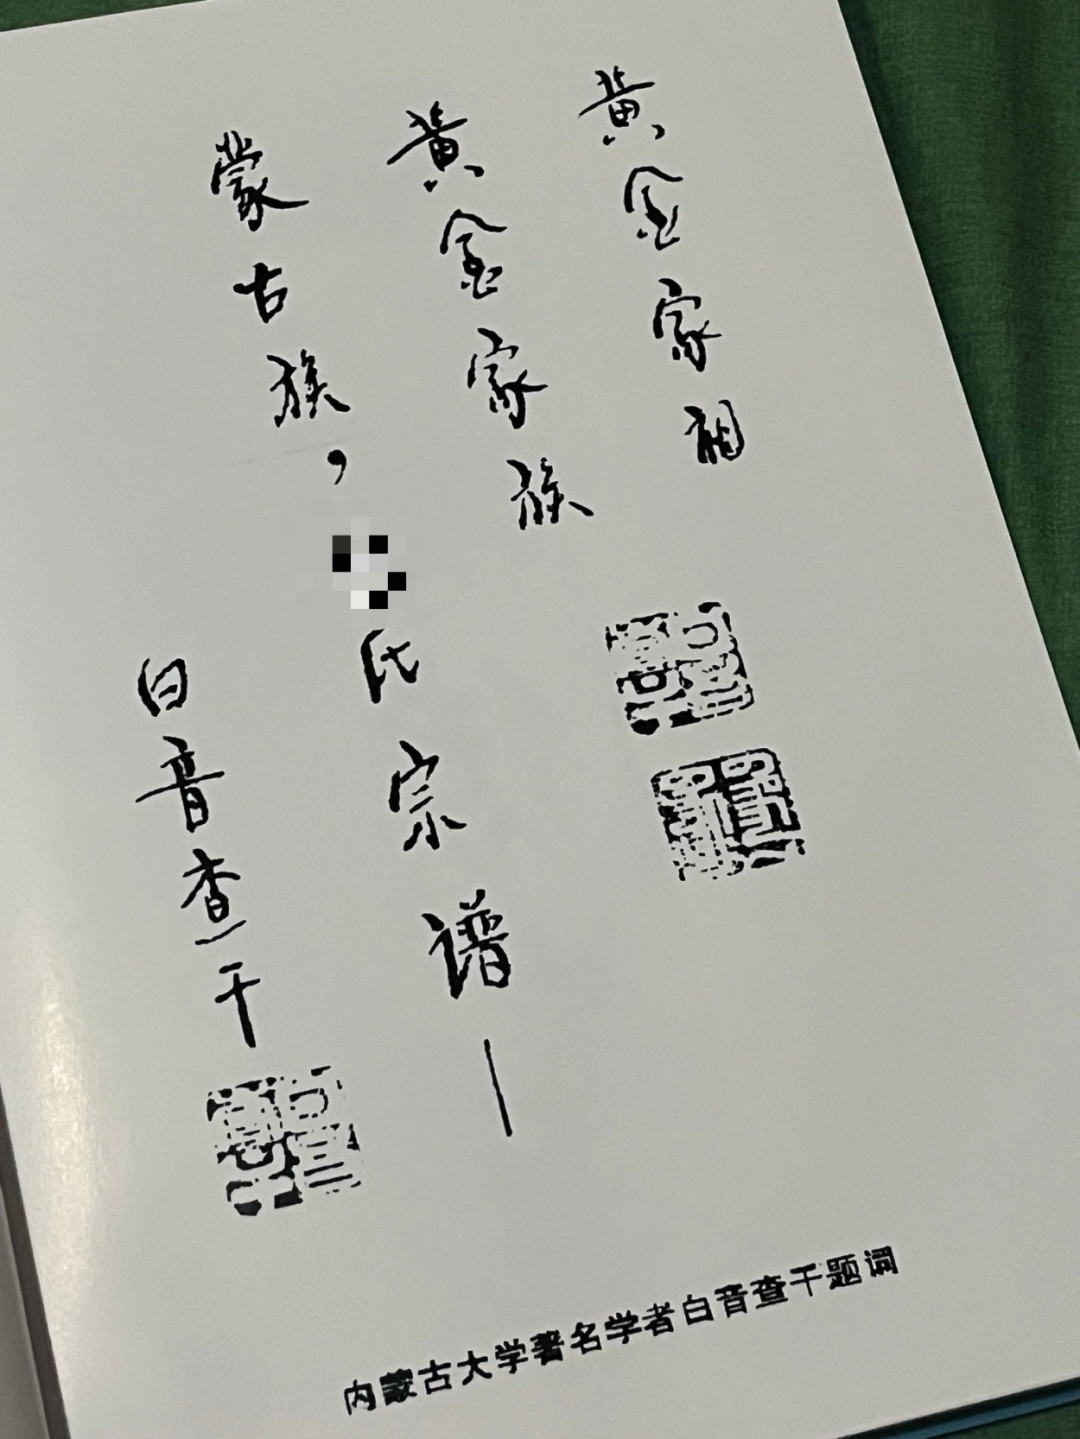 黄金家
黄金家族
蒙古族，氏宗谱—
白音查干
内蒙古大学著名学者白音查干题词